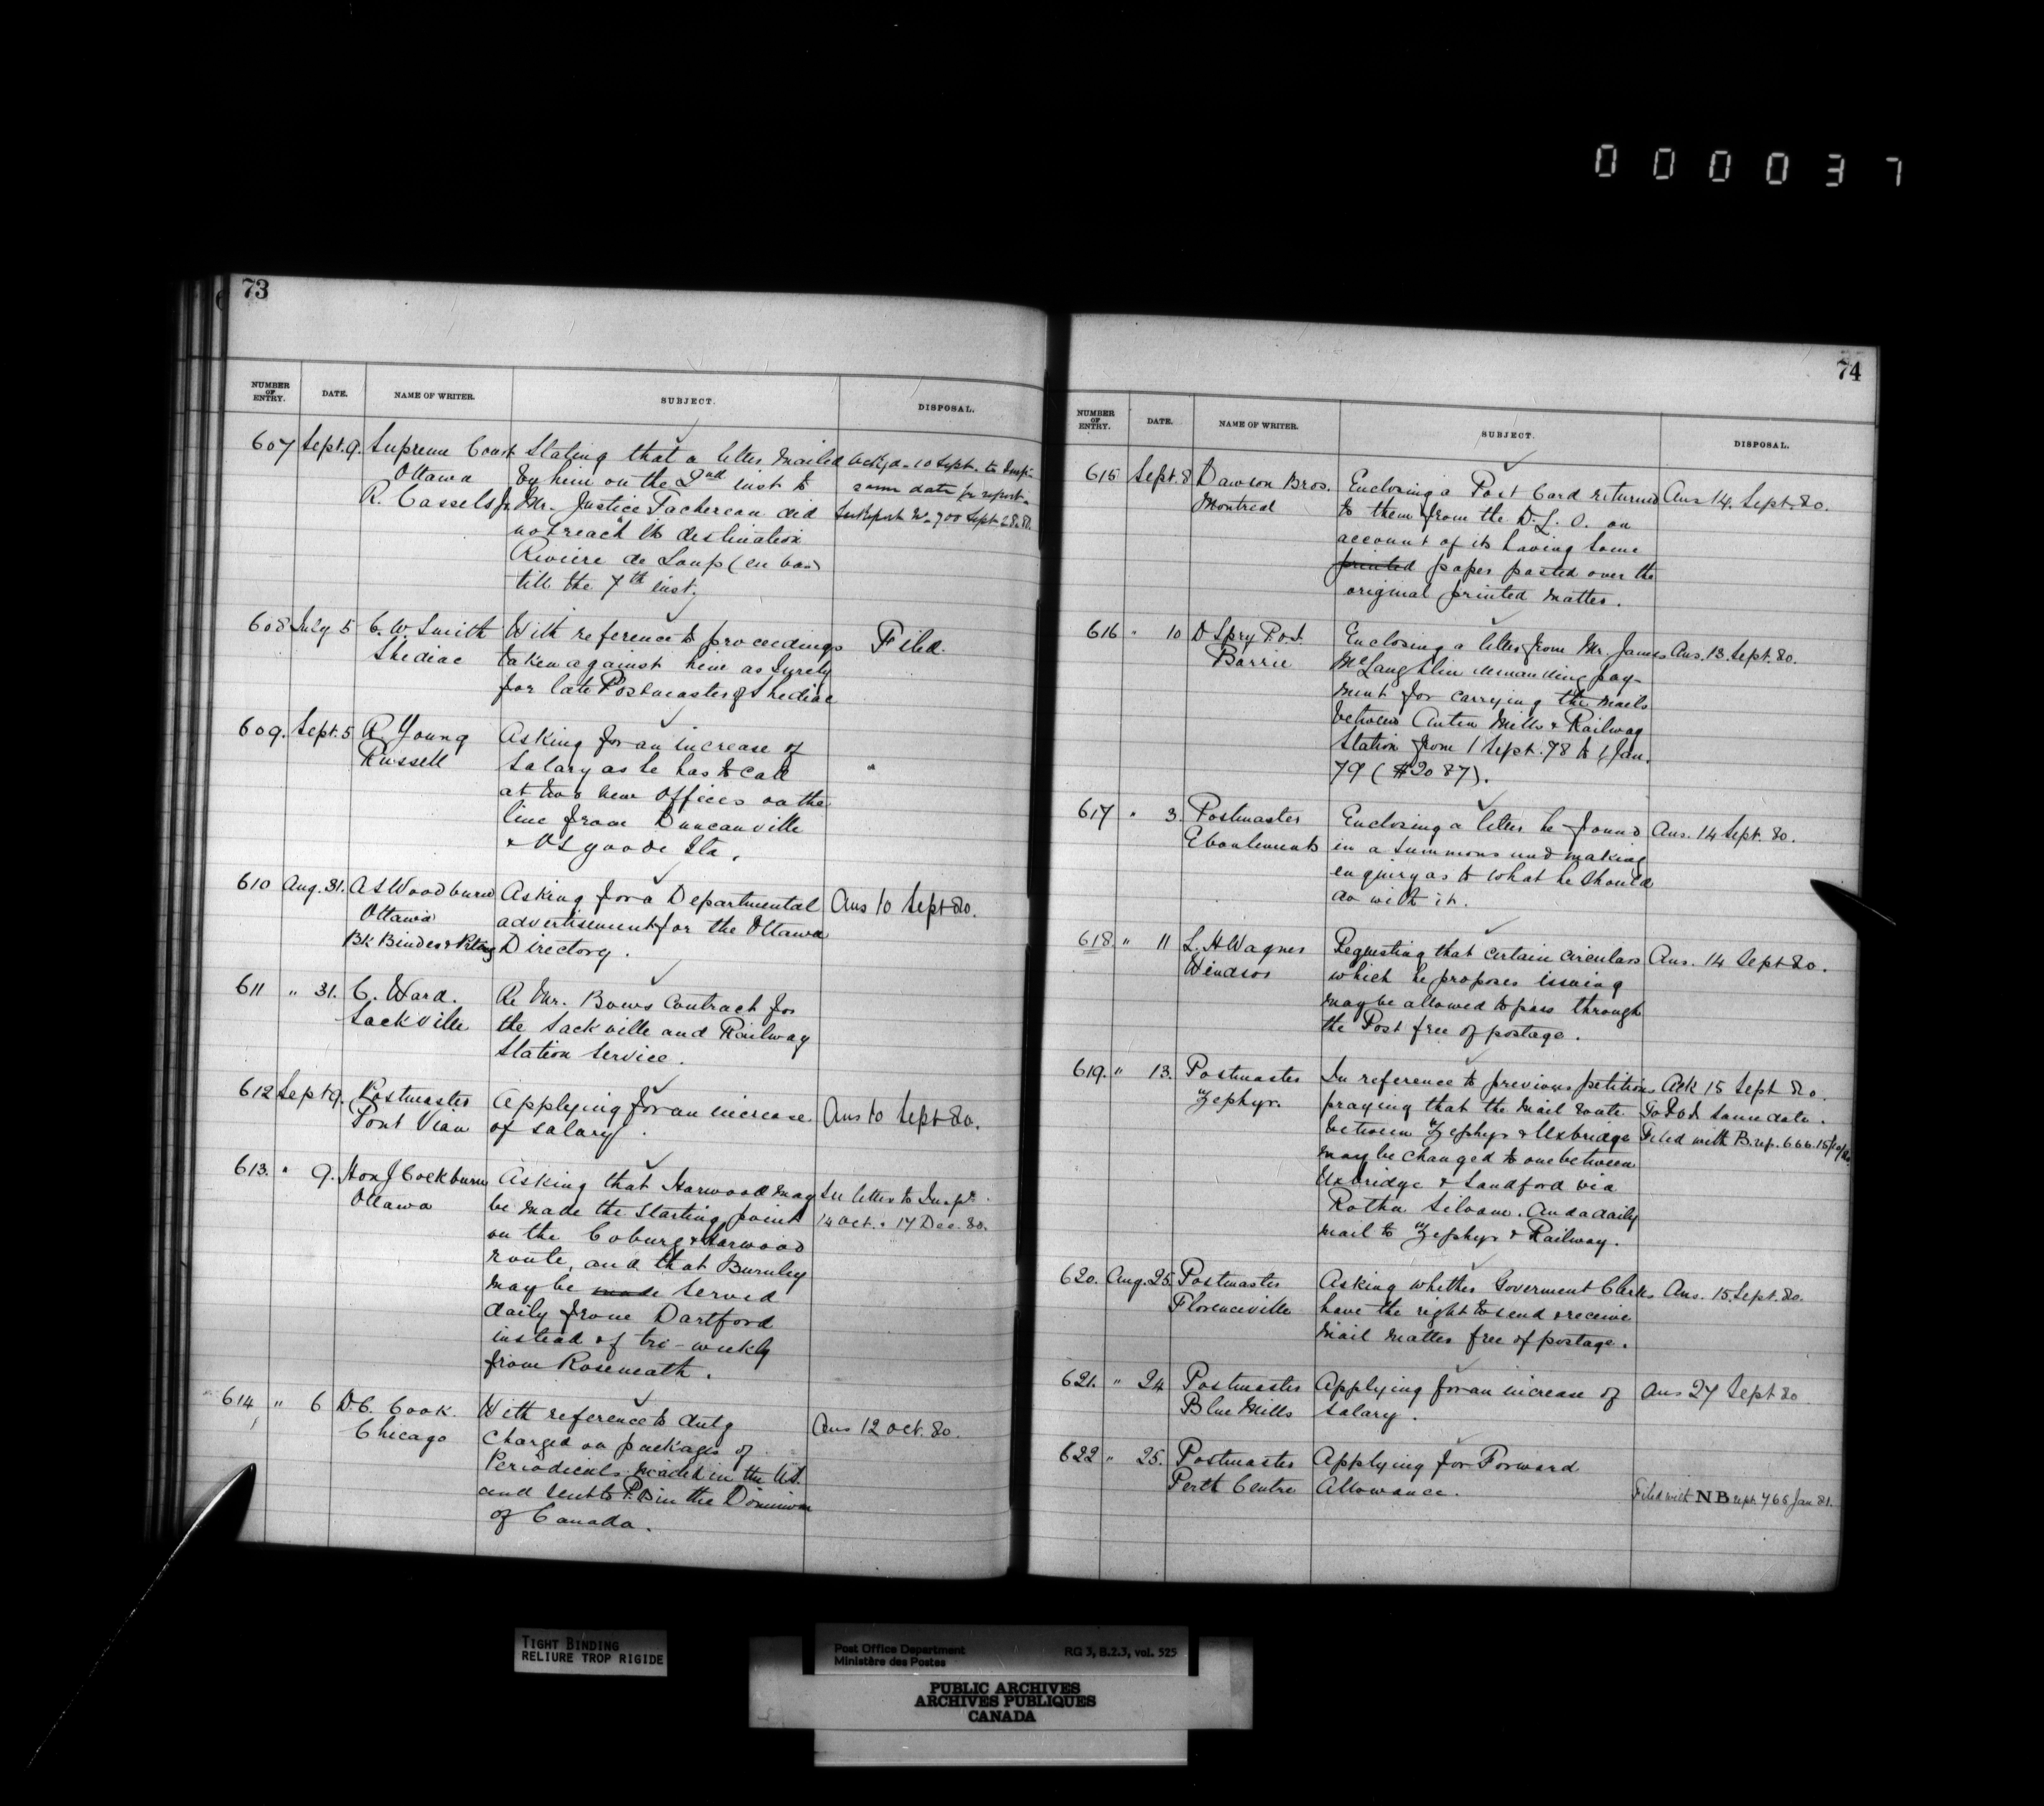 000037
73
NUMBER OF ENTRY. DATE. NAME OF WRITER. SUBJECT. DISPOSAL.
607 Sept. 9. Supreme Court Stating that a letter mailed Ack'd 10 Sept. to Insp.
Ottawa by him on the 2nd inst to same date for report.
R. Cassels Jr. Mr. Justice Tachereau did See Report No. 700 Sept. 28.80.
not reach its destination
Riviere de Loup (en bas)
till the 7th inst.
608 July 5 C. W. Smith With reference to proceedings Filed.
Shediac taken against him as Surety
for late Postmaster of Shediac
609. Sept. 5 R Young Asking for an increase of
Russell Salary as he has to call "
at two new offices on the
line from Duncanville
& Osgoode Sta.
610 Aug. 31. A S Woodburn Asking for a Departmental Ans 10 Sept 80.
Ottawa advertisement for the Ottawa
Bk Binder & Ptng Directory.
611 " 31. C. Ward. Re Mr. Bows Contract for
Sackville the Sackville and Railway
Station Service.
612 Sept 9. Postmaster Applying for an increase Ans 10 Sept 80.
Pont Viau of salary.
613. " 9. Hon J Cockburn Asking that Harwood may See letter to Inspr.
Ottawa be made the starting point 14 Oct. & 17 Dec. 80.
on the Coburg & Harwood
route, and that Burnley
may be made served
daily from Dartford
instead of tri-weekly
from Roseneath.
614 " 6 D. C. Cook. With reference to duty
Chicago charged on packages of Ans 12 Oct. 80.
Periodicals mailed in the U.S.
and sent to P.B in the Dominion
of Canada.
74
NUMBER OF ENTRY. DATE. NAME OF WRITER. SUBJECT. DISPOSAL.
615 Sept. 8 Dawson Bros. Enclosing a Post Card returned Ans 14. Sept. 80.
Montreal to them from the D. L. O. on
account of its having some
printed paper pasted over the
original printed matter.
616 " 10 D Spry P.O.I. Enclosing a letter from Mr. James Ans. 13. Sept. 80.
Barrie McLaughlin demanding pay-
ment for carrying the mails
between Anten Mills & Railway
Station from 1 Sept. 78 to 1 Jan.
79 ($20 87).
617 " 3. Postmaster Enclosing a letter he found Ans. 14 Sept. 80.
Eboulements in a summons and making
enquiry as to what he should
do with it.
618 " 11 L. H Wagner Requesting that certain circulars Ans. 14 Sept 80.
Windsor which he proposes issuing
may be allowed to pass through
the Post free of postage.
619. " 13. Postmaster In reference to previous petitions Ack 15 Sept 80.
Zephyr. praying that the mail route To P.O.I. same date.
between Zephyr & Uxbridge Filed with B. rep. 666. 15/10/80
may be changed to one between
Uxbridge & Sandford via
Rotha Siloam. And a daily
mail to Zephyr & Railway.
620. Aug. 25. Postmaster Asking whether Goverment Clerks Ans. 15. Sept. 80.
Florenceville have the right to send & receive
mail matter free of postage.
621. " 24 Postmaster Applying for an increase of Ans 27 Sept 80
Blue Mills salary.
622 " 25. Postmaster Applying for Forward
Perth Centre Allowance. Filed with NB rept. 765 Jan 81.
TIGHT BINDING
RELIURE TROP RIGIDE
Post Office Department RG 3, B.2.3, vol. 525
Ministère des Postes
PUBLIC ARCHIVES
ARCHIVES PUBLIQUES
CANADA